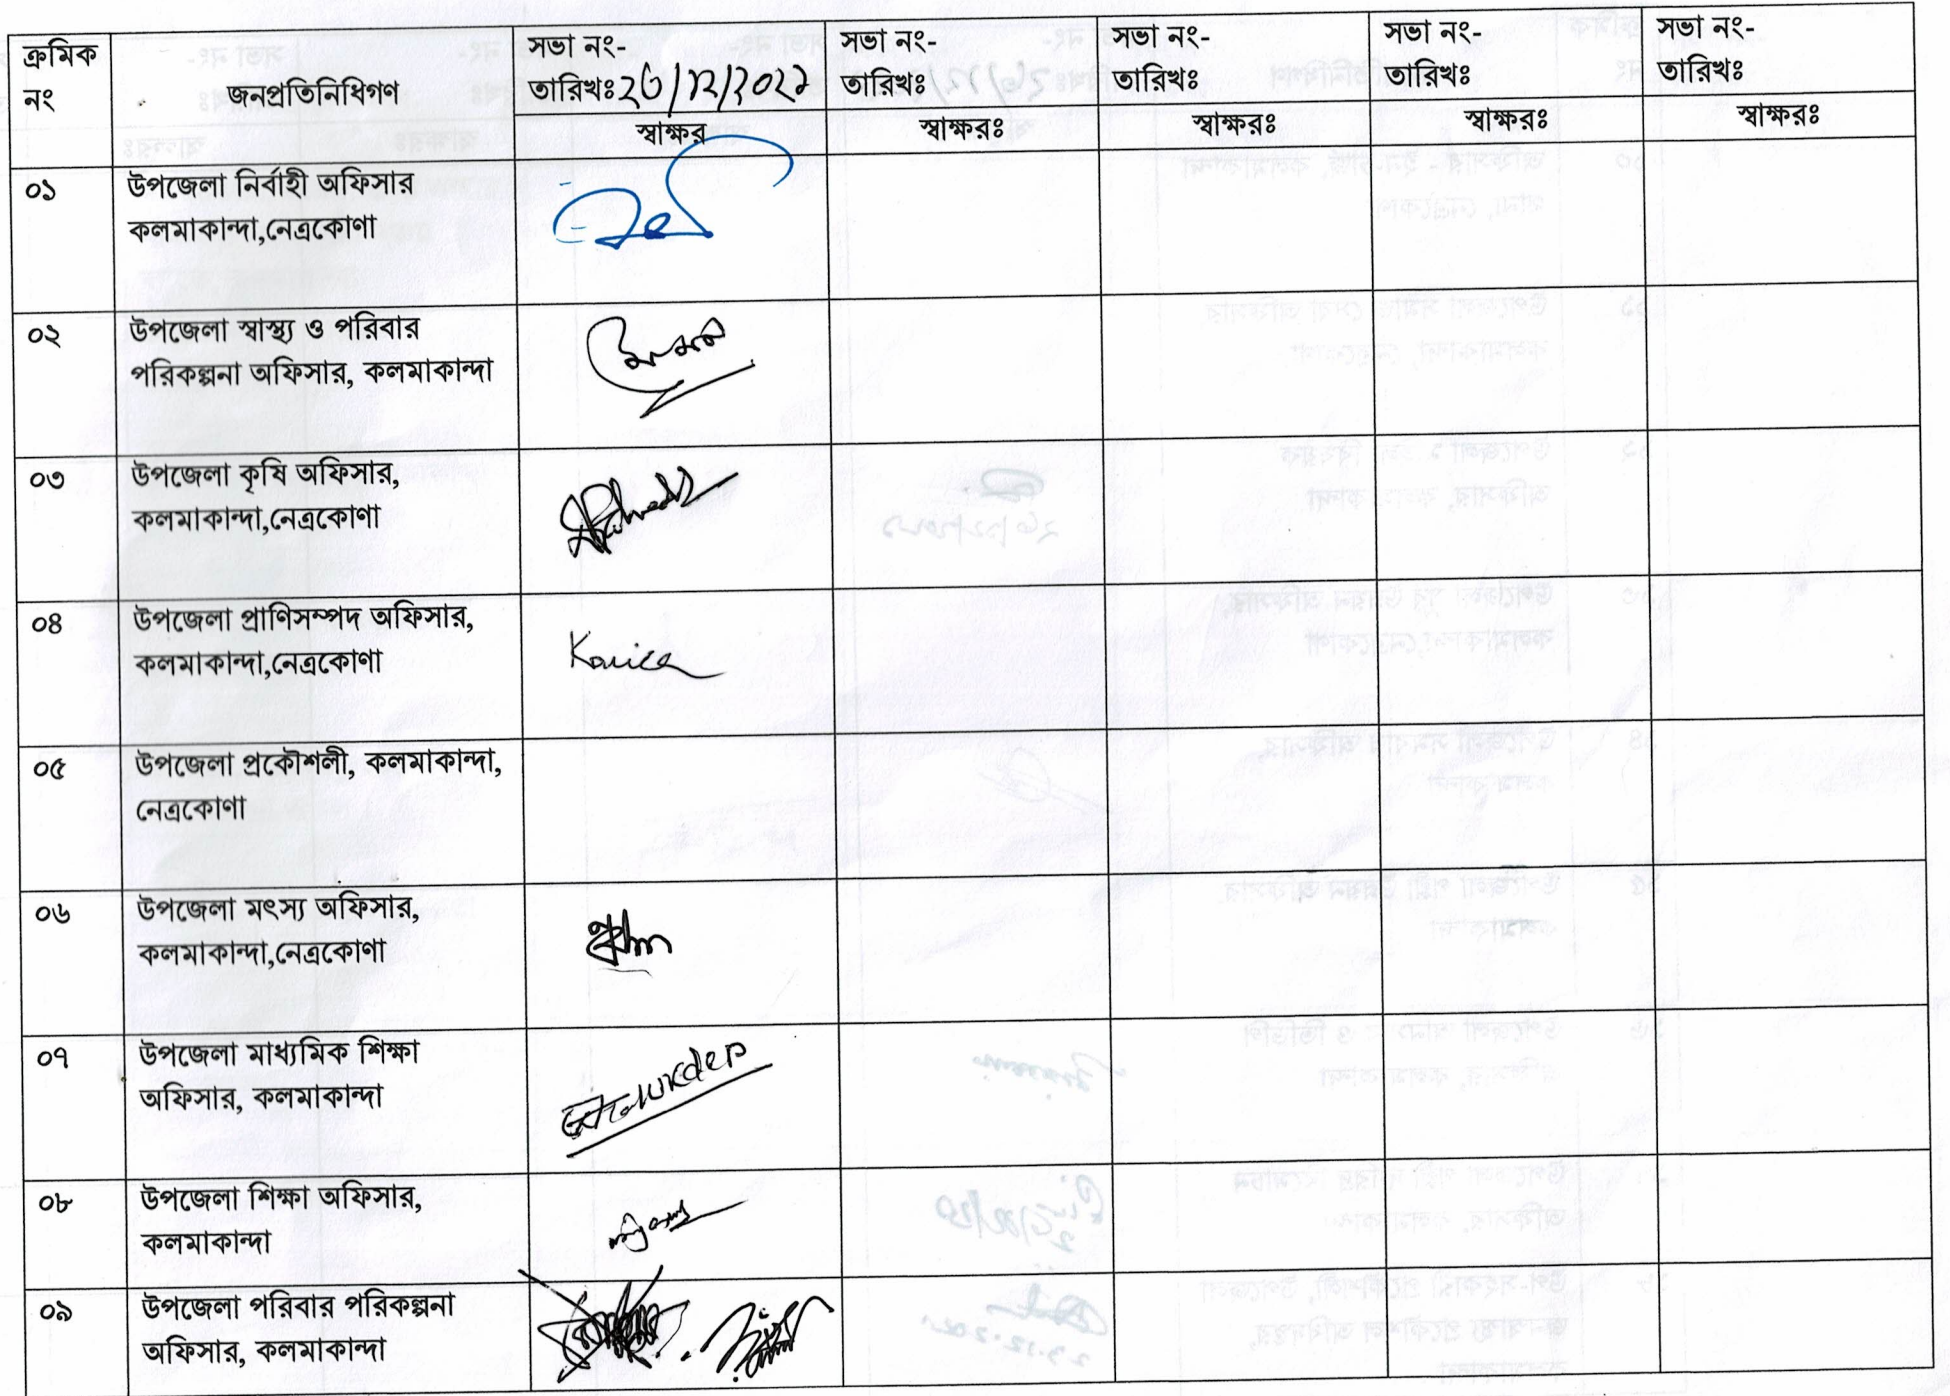 ক্রমিক নং জনপ্রতিনিধিগণ সভা নং- সভা নং- সভা নং- সভা নং- সভা নং-
তারিখঃ ২৬/১২/২০২২ তারিখঃ তারিখঃ তারিখঃ তারিখঃ
স্বাক্ষর স্বাক্ষরঃ স্বাক্ষরঃ স্বাক্ষরঃ স্বাক্ষরঃ
০১ উপজেলা নির্বাহী অফিসার
কলমাকান্দা,নেত্রকোণা
০২ উপজেলা স্বাস্থ্য ও পরিবার
পরিকল্পনা অফিসার, কলমাকান্দা
০৩ উপজেলা কৃষি অফিসার,
কলমাকান্দা,নেত্রকোণা
০৪ উপজেলা প্রাণিসম্পদ অফিসার,
কলমাকান্দা,নেত্রকোণা
০৫ উপজেলা প্রকৌশলী, কলমাকান্দা,
নেত্রকোণা
০৬ উপজেলা মৎস্য অফিসার,
কলমাকান্দা,নেত্রকোণা
০৭ উপজেলা মাধ্যমিক শিক্ষা
অফিসার, কলমাকান্দা
০৮ উপজেলা শিক্ষা অফিসার,
কলমাকান্দা
০৯ উপজেলা পরিবার পরিকল্পনা
অফিসার, কলমাকান্দা